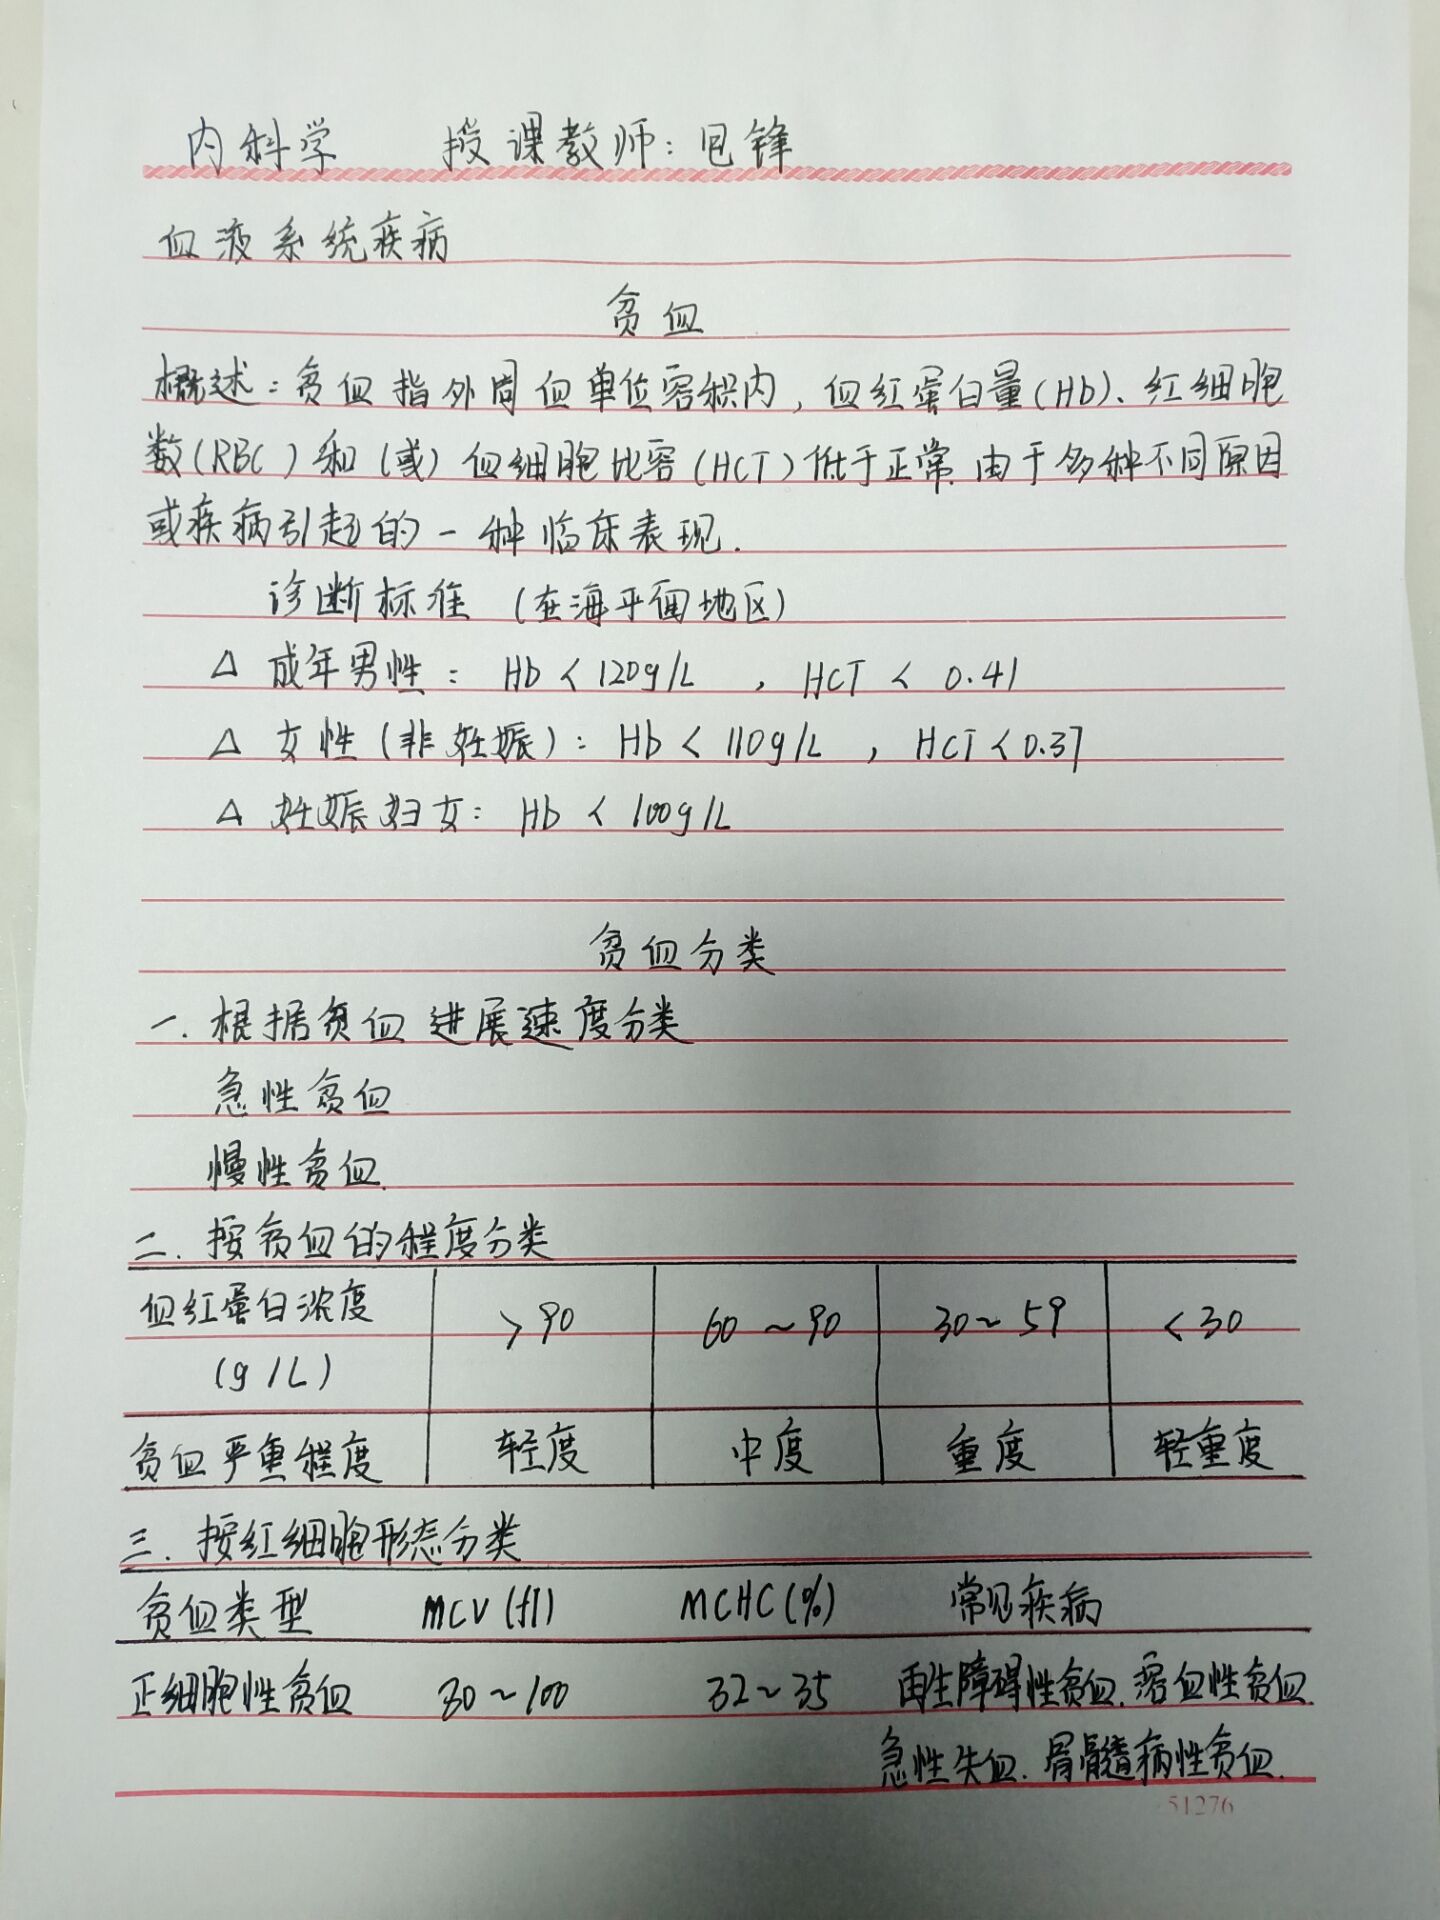 内科学 授课教师：包锋
血液系统疾病
贫血
概述：贫血指外周血单位容积内，血红蛋白量(Hb)、红细胞
数(RBC)和(或)血细胞比容(HCT)低于正常.由于多种不同原因
或疾病引起的一种临床表现.
诊断标准 (在海平面地区)
△ 成年男性： Hb < 120g/L ，HCT < 0.41
△ 女性(非妊娠)：Hb < 110g/L ，HCT < 0.37
△ 妊娠妇女：Hb < 100g/L
贫血分类
一.根据贫血进展速度分类
急性贫血
慢性贫血.
二.按贫血的程度分类
血红蛋白浓度 >90 60~90 30~59 <30
(g/L)
贫血严重程度 轻度 中度 重度 轻重度
三.按红细胞形态分类
贫血类型 MCV(fl) MCHC(%) 常见疾病
正细胞性贫血 80~100 32~35 再生障碍性贫血.溶血性贫血.
急性失血.骨髓病性贫血.
51276